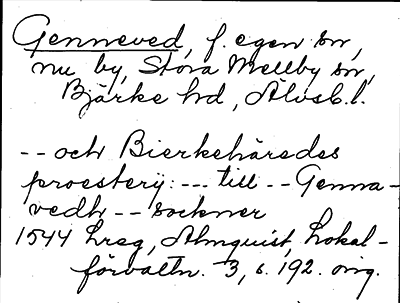 Genneved, f. egen sn,
nu by, Stora Mellby sn,
Bjärke hd, Älvsb. l.
-- och Bierkehäredes
proesterij: --- till -- Genna-
vedh -- sockner
1544 hreg, Almquist, Lokal-
förvaltn. 3, s. 192. orig.